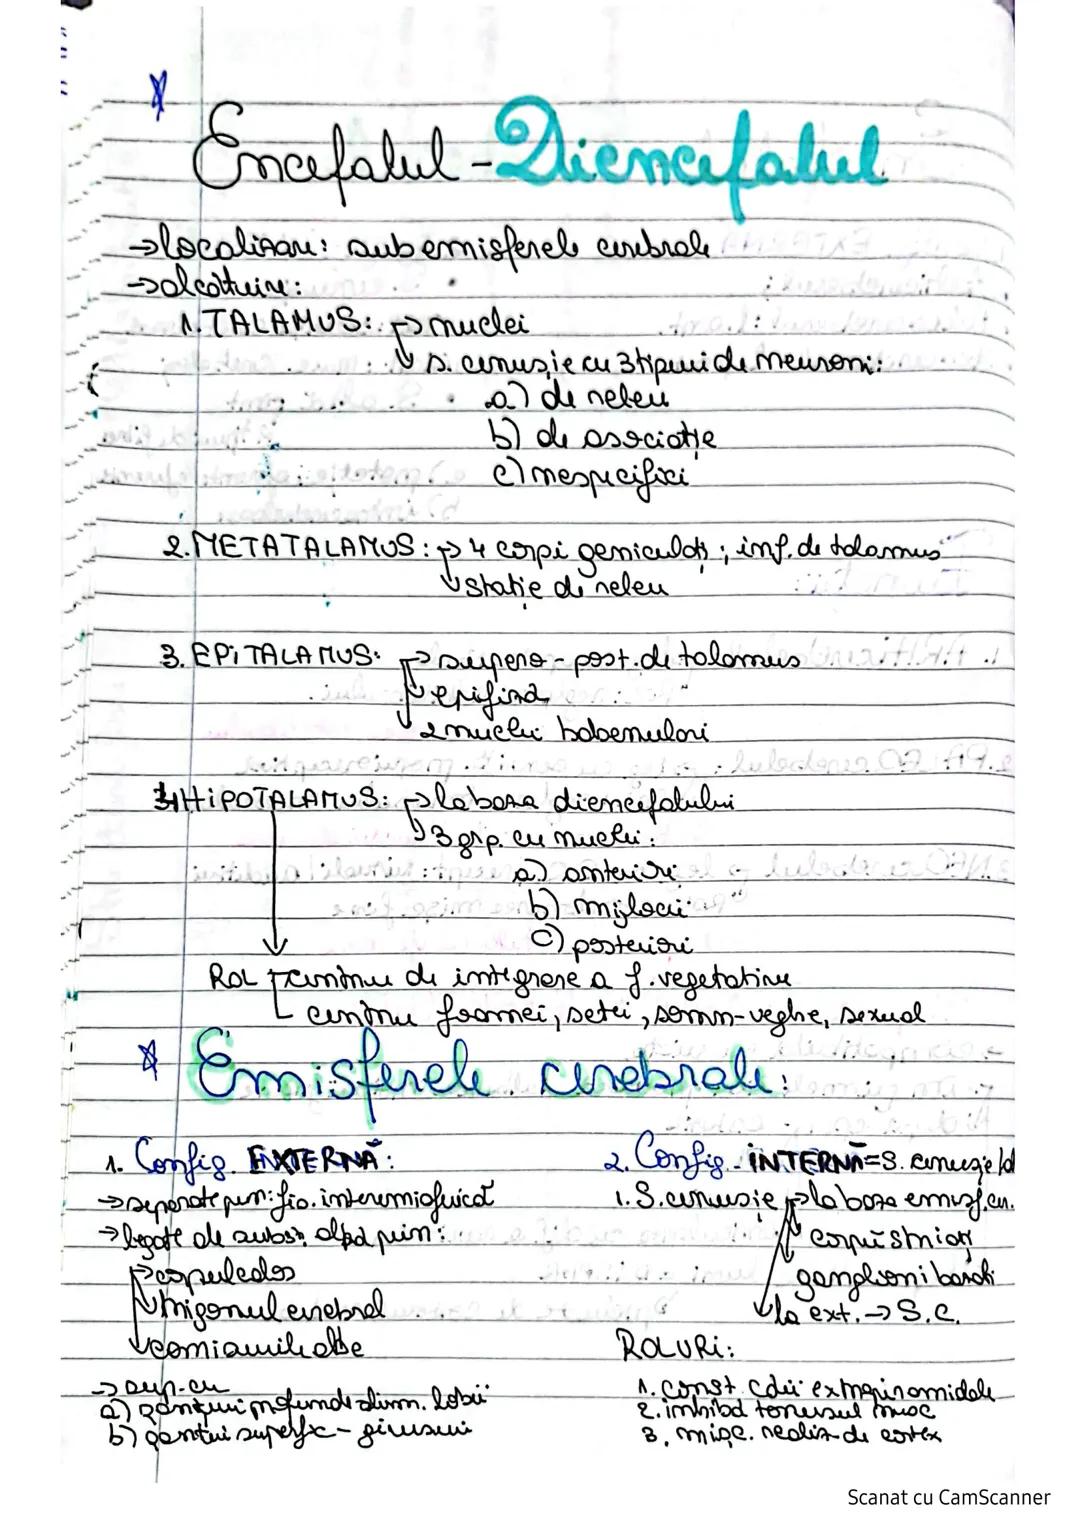 Encefalul - Diencefalul
→ localizare: sub emisferele cerebrale
→ alcătuire:
1. TALAMUS: → nuclei
↳ s. cenușie cu 3 tipuri de neuroni:
a) de releu
b) de asociație
c) nespecifici
2. METATALAMUS: → 4 corpi geniculați; inf. de talamus
↳ stație de releu
3. EPITALAMUS: → supero-post. de talamus
→ epifiză
2 nuclei habenulari
4. HIPOTALAMUS: → la baza diencefalului
↳ 3 grp. cu nuclei:
a) anteriori
b) mijlocii
c) posteriori
ROL centrru de integrare a f. vegetative
centru foamei, setei, somn-veghe, sexual
Emisferele cerebrale:
1. Config. EXTERNĂ:
→ separate prin: fis. interemisferică
→ legate de subs. albă prin:
→ corpul calos
trigonul cerebral
comisurile albe
→ sup. cu
a) șanțuri profunde - delim. lobii
b) șanțuri superfc - girusuri
2. Config. INTERNĂ = S. cenușie/al
1. S. cenușie → la baza emisf. cer.
corpii striați
ganglioni bazali
la ext. → S.C.
ROLURI:
1. const. căii extrapiramidale
2. inhibă tonusul musc
3. mișc. realiz de cortex
Scanat cu CamScanner